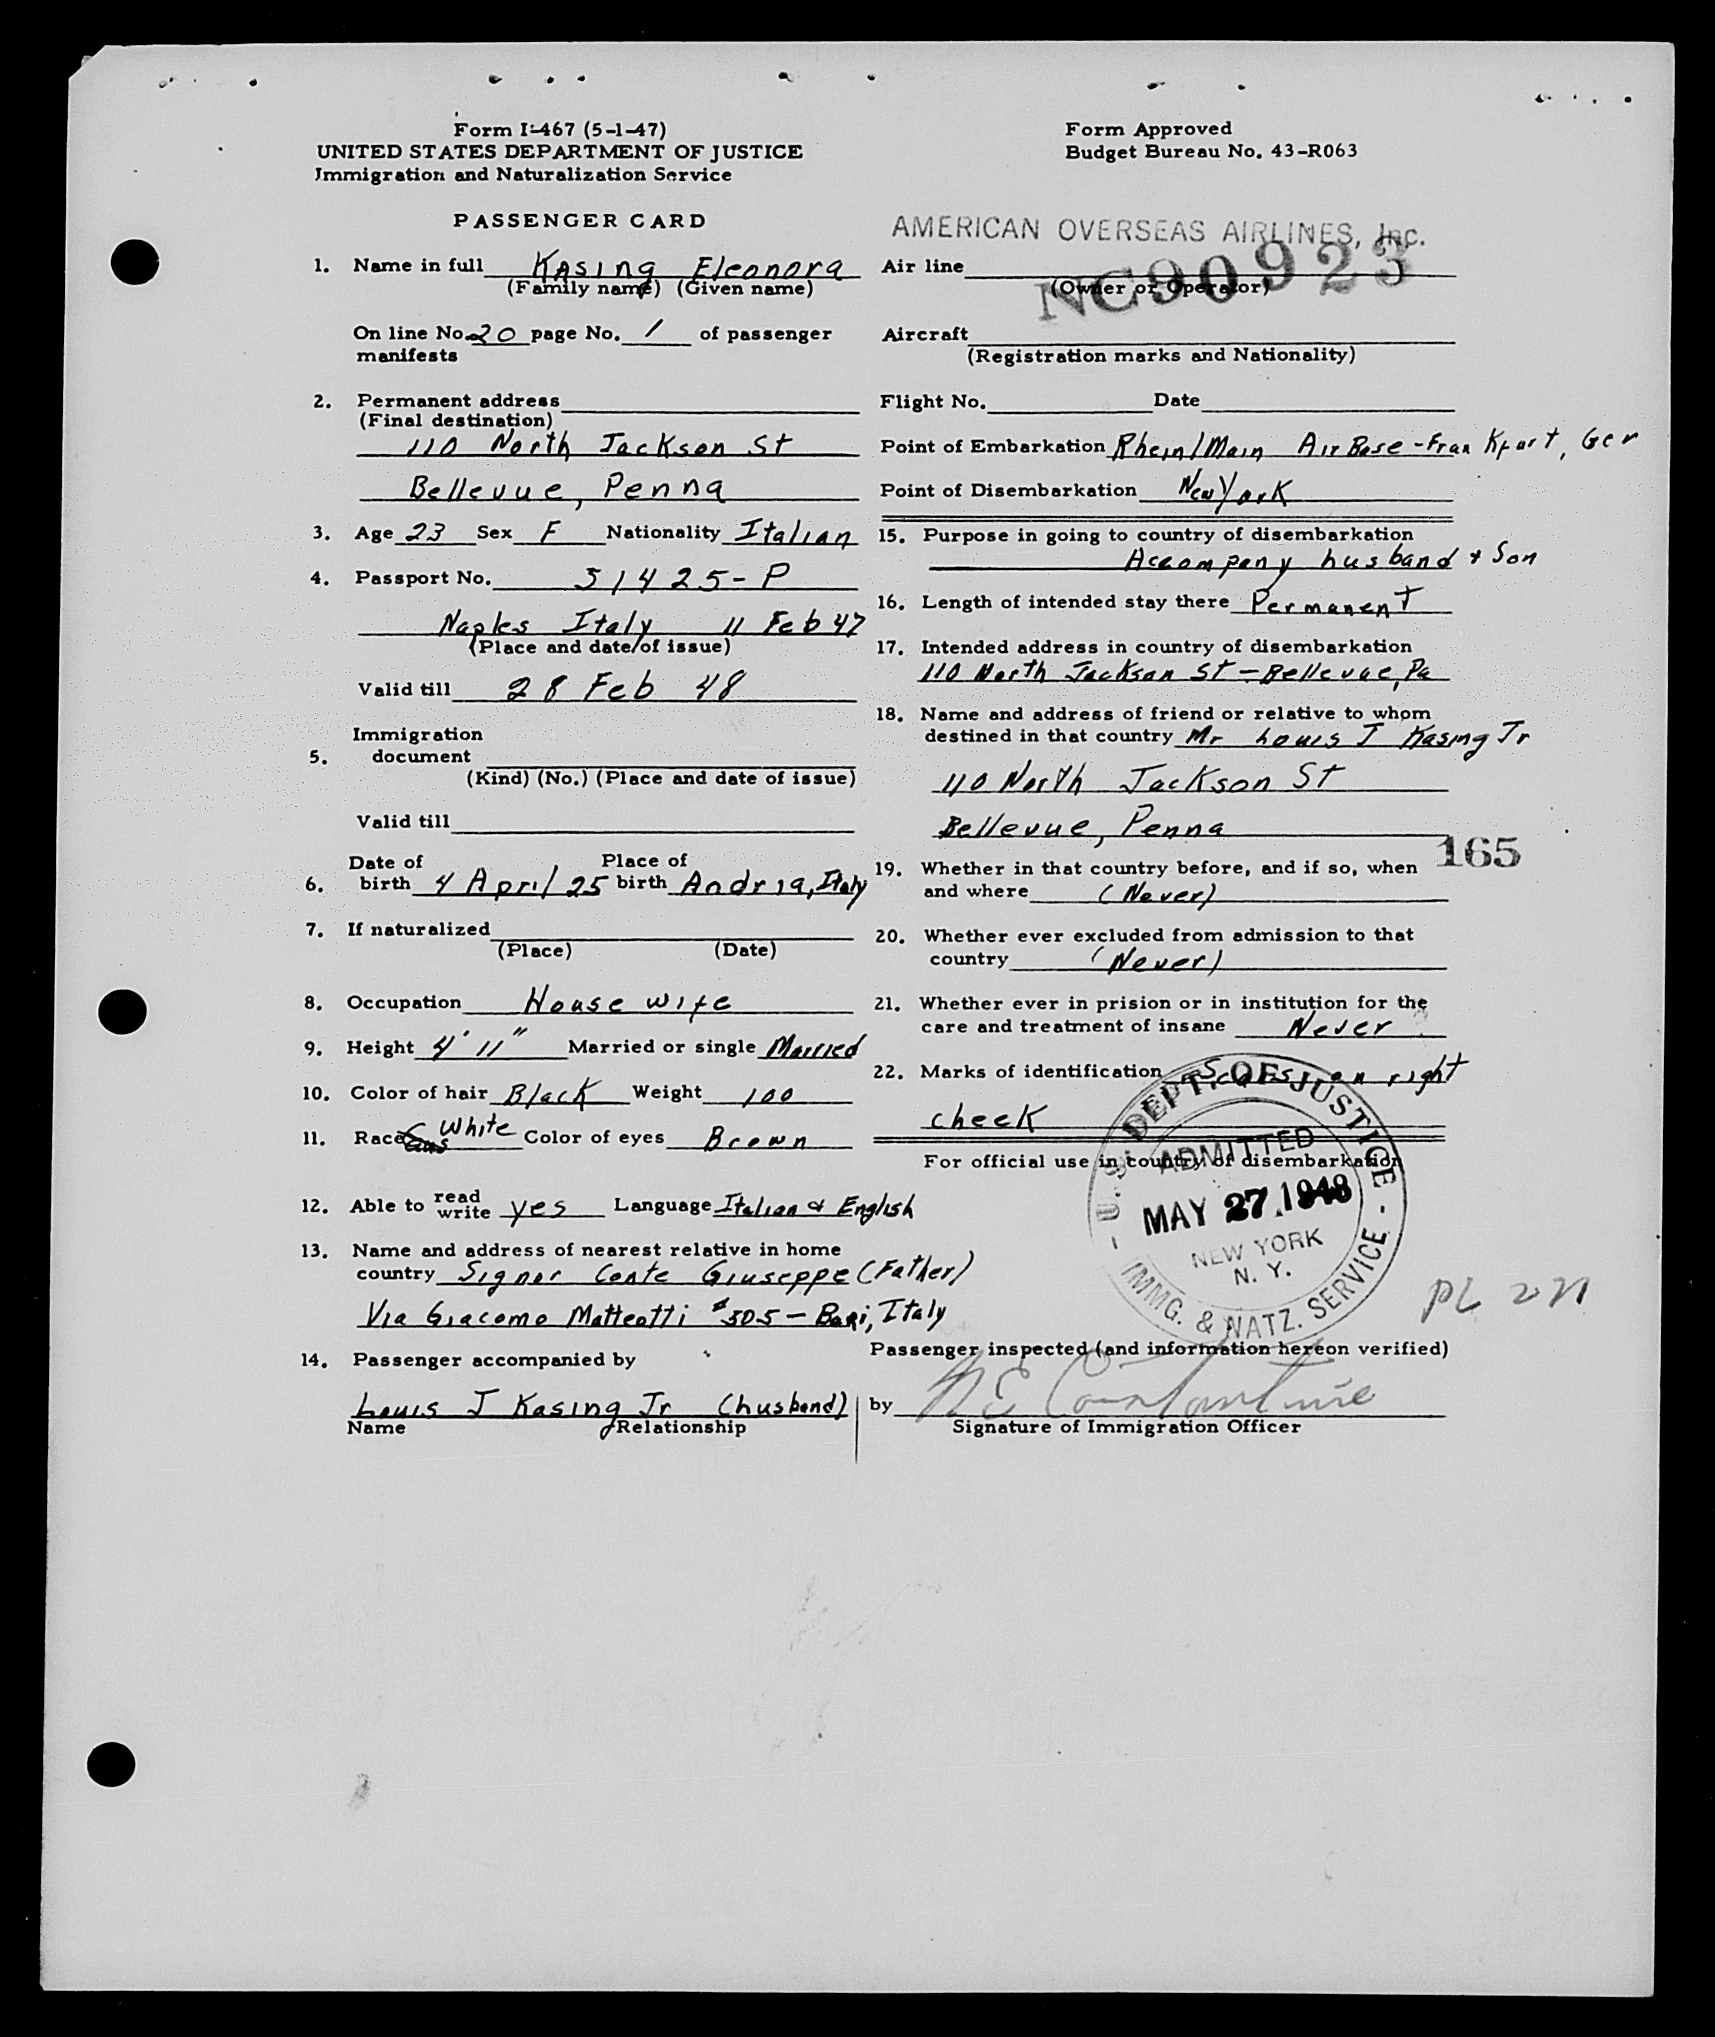 Form I-467 (5-1-47)
UNITED STATES DEPARTMENT OF JUSTICE
Immigration and Naturalization Service
Form Approved
Budget Bureau No. 43-R063
PASSENGER CARD
AMERICAN OVERSEAS AIRLINES, Inc.
1. Name in full Kasing Eleonora
(Family name) (Given name)
On line No. 20 page No. 1 of passenger
manifests
2. Permanent address
(Final destination)
110 North Jackson St
Bellevue, Penna
3. Age 23 Sex F Nationality Italian
4. Passport No. 51425-P
Naples Italy 11 Feb 47
(Place and date of issue)
Valid till 28 Feb 48
5. Immigration
document
(Kind) (No.) (Place and date of issue)
Valid till
6. Date of birth 4 April 25 Place of birth Andria, Italy
7. If naturalized
(Place) (Date)
8. Occupation House wife
9. Height 4' 11" Married or single Married
10. Color of hair Black Weight 100
11. Race White Color of eyes Brown
12. Able to read write yes Language Italian & English
13. Name and address of nearest relative in home
country Signor Conte Giuseppe (Father)
Via Giacomo Matteotti #505 - Bari, Italy
14. Passenger accompanied by
Louis J Kasing Jr (husband)
Name Relationship
Air line
(Owner or Operator)
NC90923
Aircraft
(Registration marks and Nationality)
Flight No. Date
Point of Embarkation Rhein/Main Air Base - Frankfurt, Ger
Point of Disembarkation New York
15. Purpose in going to country of disembarkation
Accompany husband & Son
16. Length of intended stay there Permanent
17. Intended address in country of disembarkation
110 North Jackson St - Bellevue, Pa
18. Name and address of friend or relative to whom
destined in that country Mr Louis J Kasing Jr
110 North Jackson St
Bellevue, Penna
165
19. Whether in that country before, and if so, when
and where (Never)
20. Whether ever excluded from admission to that
country (Never)
21. Whether ever in prision or in institution for the
care and treatment of insane Never
22. Marks of identification Scars on right
cheek
For official use in country of disembarkation
U. S. DEPT. OF JUSTICE
ADMITTED
MAY 27 1948
NEW YORK
N. Y.
IMMG. & NATZ. SERVICE
Passenger inspected (and information hereon verified)
by N E Constantine
Signature of Immigration Officer